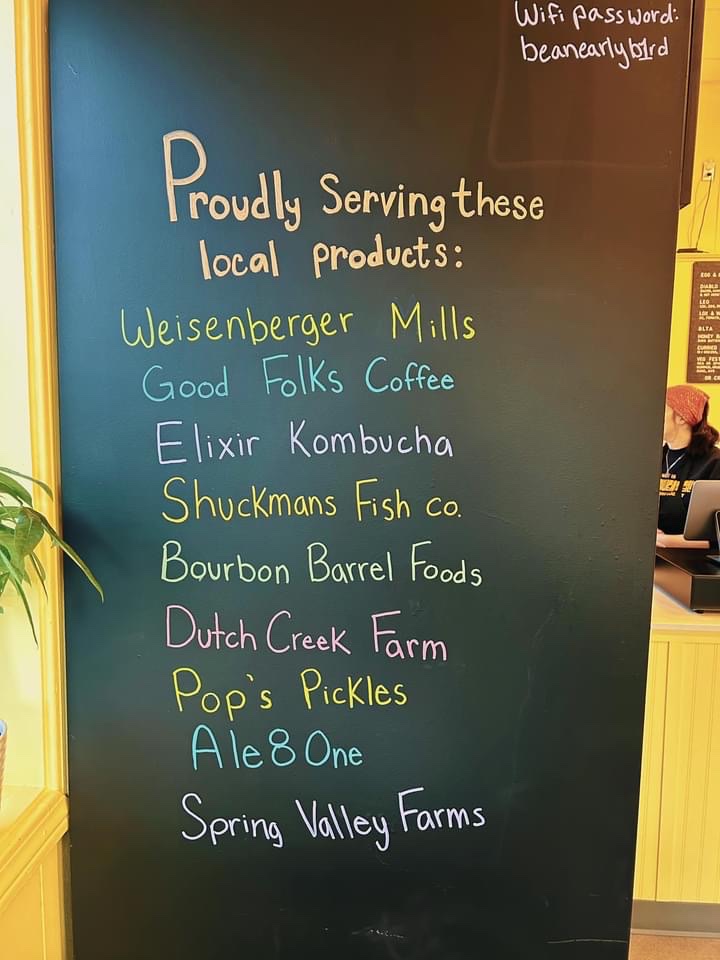 Wifi password:
beanearlyb1rd
Proudly Serving these
local products:
Weisenberger Mills
Good Folks Coffee
Elixir Kombucha
Shuckmans Fish co.
Bourbon Barrel Foods
Dutch Creek Farm
Pop's Pickles
Ale 8 One
Spring Valley Farms
EGG &
DIABLO
LEO
LOX & W
BLTA
HONEY B
CURRIED
VEG FEST
OR CR